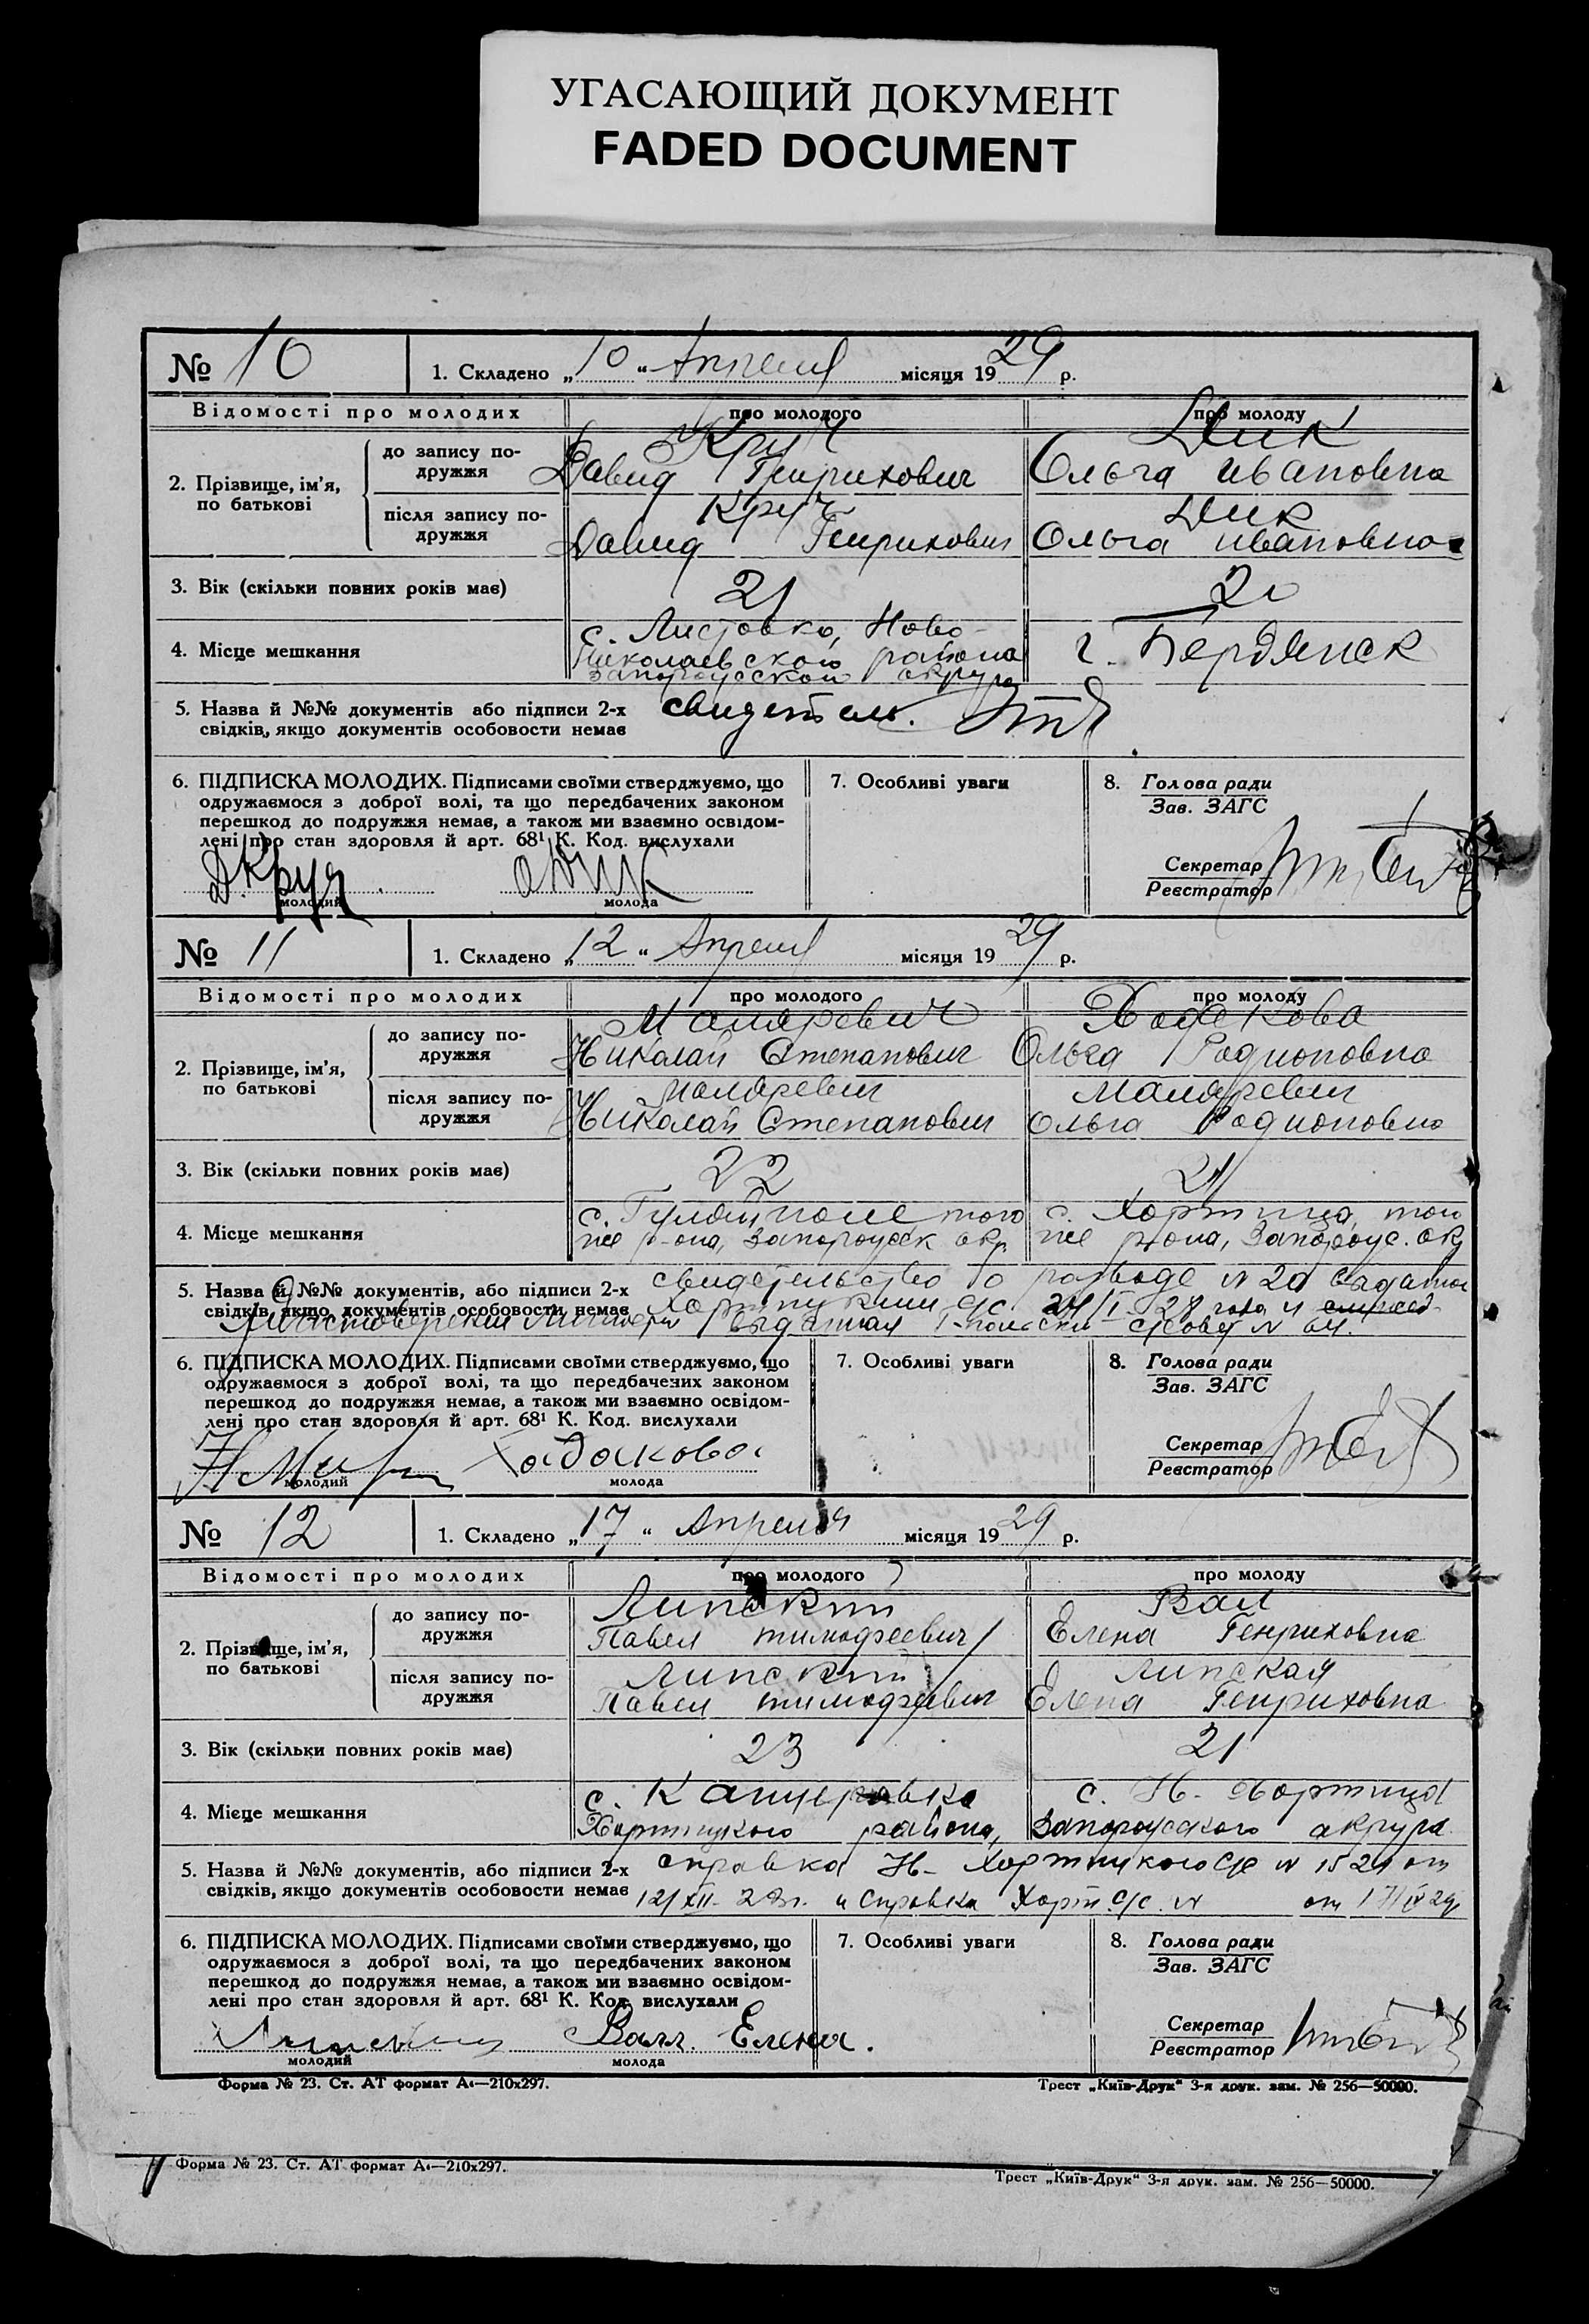 УГАСАЮЩИЙ ДОКУМЕНТ
FADED DOCUMENT
№ 10 1. Складено „10“ Апреля місяця 1929 р.
Відомості про молодих про молодого про молоду
2. Прізвище, ім’я, по батькові
до запису подружжя
Круч Дик
Давид Генрихович Ольга Ивановна
після запису подружжя
Круч Дик
Давид Генрихович Ольга Ивановна
3. Вік (скільки повних років має) 21 20
4. Місце мешкання
с. Листовка, Ново- г. Бердянск
Николаевского района
Запорожской округа
5. Назва й №№ документів або підписи 2-х свидетель.
свідків, якщо документів особовости немає
6. ПІДПИСКА МОЛОДИХ. Підписами своїми стверджуємо, що 7. Особливі уваги 8. Голова ради
одружаємося з доброї волі, та що передбачених законом Зав. ЗАГС
перешкод до подружжя немає, а також ми взаємно освідом-
лені про стан здоровля й арт. 68¹ К. Код. вислухали
Секретар
Реєстратор
Д. Круч. ОДик
молодий молода
№ 11 1. Складено „12“ Апреля місяця 1929 р.
Відомості про молодих про молодого про молоду
2. Прізвище, ім’я, по батькові
до запису подружжя
Маляревич Ходакова
Николай Степанович Ольга Родионовна
після запису подружжя
Маляревич Маляревич
Николай Степанович Ольга Родионовна
3. Вік (скільки повних років має) 22 21
4. Місце мешкання
с. Гуляйполе того с. Хортица, того
же р-она, Запорожск окр. же р-она, Запорож. окр
5. Назва й №№ документів, або підписи 2-х свидетельство о разводе № 20 выдатое
свідків, якщо документів особовости немає Хортицким с/с 24/I-28 года и
выданная № 64.
6. ПІДПИСКА МОЛОДИХ. Підписами своїми стверджуємо, що 7. Особливі уваги 8. Голова ради
одружаємося з доброї волі, та що передбачених законом Зав. ЗАГС
перешкод до подружжя немає, а також ми взаємно освідом-
лені про стан здоровля й арт. 68¹ К. Код. вислухали
Секретар
Реєстратор
Ходакова
молодий молода
№ 12 1. Складено „17“ Апреля місяця 1929 р.
Відомості про молодих про молодого про молоду
2. Прізвище, ім’я, по батькові
до запису подружжя
Липский Вал
Павел Тимофеевич Елена Генриховна
після запису подружжя
Липский Липская
Павел Тимофеевич Елена Генриховна
3. Вік (скільки повних років має) 23 21
4. Місце мешкання
с. Канцеровка с. Н-Хортица
Хортицкого района, Запорожского округа
5. Назва й №№ документів, або підписи 2-х справка Н-Хортицкого с/с № 1524 от
свідків, якщо документів особовости немає 12/XII-28г. и справка Хорт. с/с. № от 17/IV 29г
6. ПІДПИСКА МОЛОДИХ. Підписами своїми стверджуємо, що 7. Особливі уваги 8. Голова ради
одружаємося з доброї волі, та що передбачених законом Зав. ЗАГС
перешкод до подружжя немає, а також ми взаємно освідом-
лені про стан здоровля й арт. 68¹ К. Код. вислухали
Секретар
Реєстратор
Валл Елена.
молодий молода
Форма № 23. Ст. АТ формат А4—210х297. Трест „Київ-Друк“ 3-я друк. зам. № 256—50000.
Форма № 23. Ст. АТ формат А4—210х297. Трест „Київ-Друк“ 3-я друк. зам. № 256—50000.